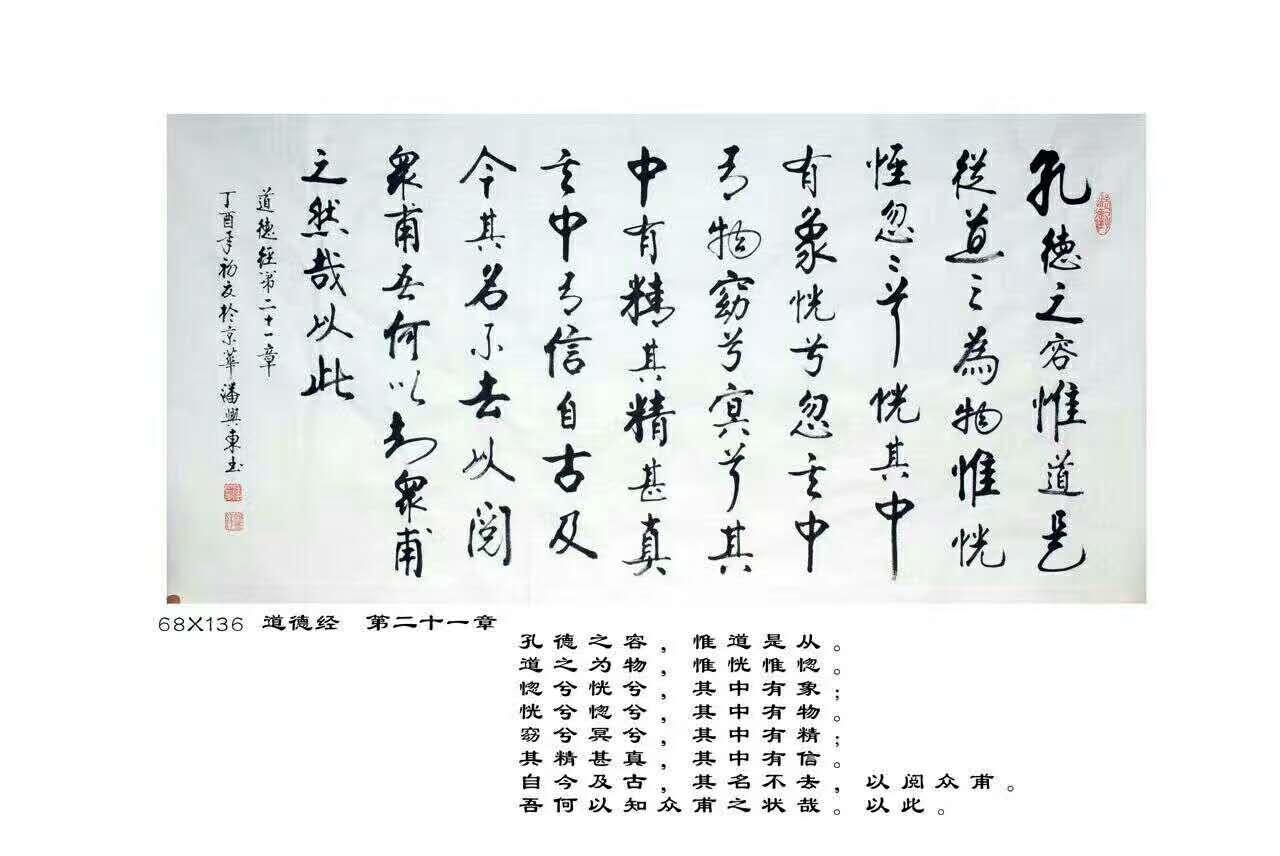 孔德之容惟道是
從道之為物惟恍
惟忽〻兮恍其中
有象恍兮忽其中
有物窈兮冥兮其
中有精其精甚真
其中有信自古及
今其名不去以閱
衆甫吾何以知衆甫
之然哉以此
道德經第二十一章
丁酉年初夏於京華潘興東書
68X136 道德经 第二十一章
孔德之容，惟道是从。
道之为物，惟恍惟惚。
惚兮恍兮，其中有象；
恍兮惚兮，其中有物。
窈兮冥兮，其中有精；
其精甚真，其中有信。
自今及古，其名不去，以阅众甫。
吾何以知众甫之状哉。以此。